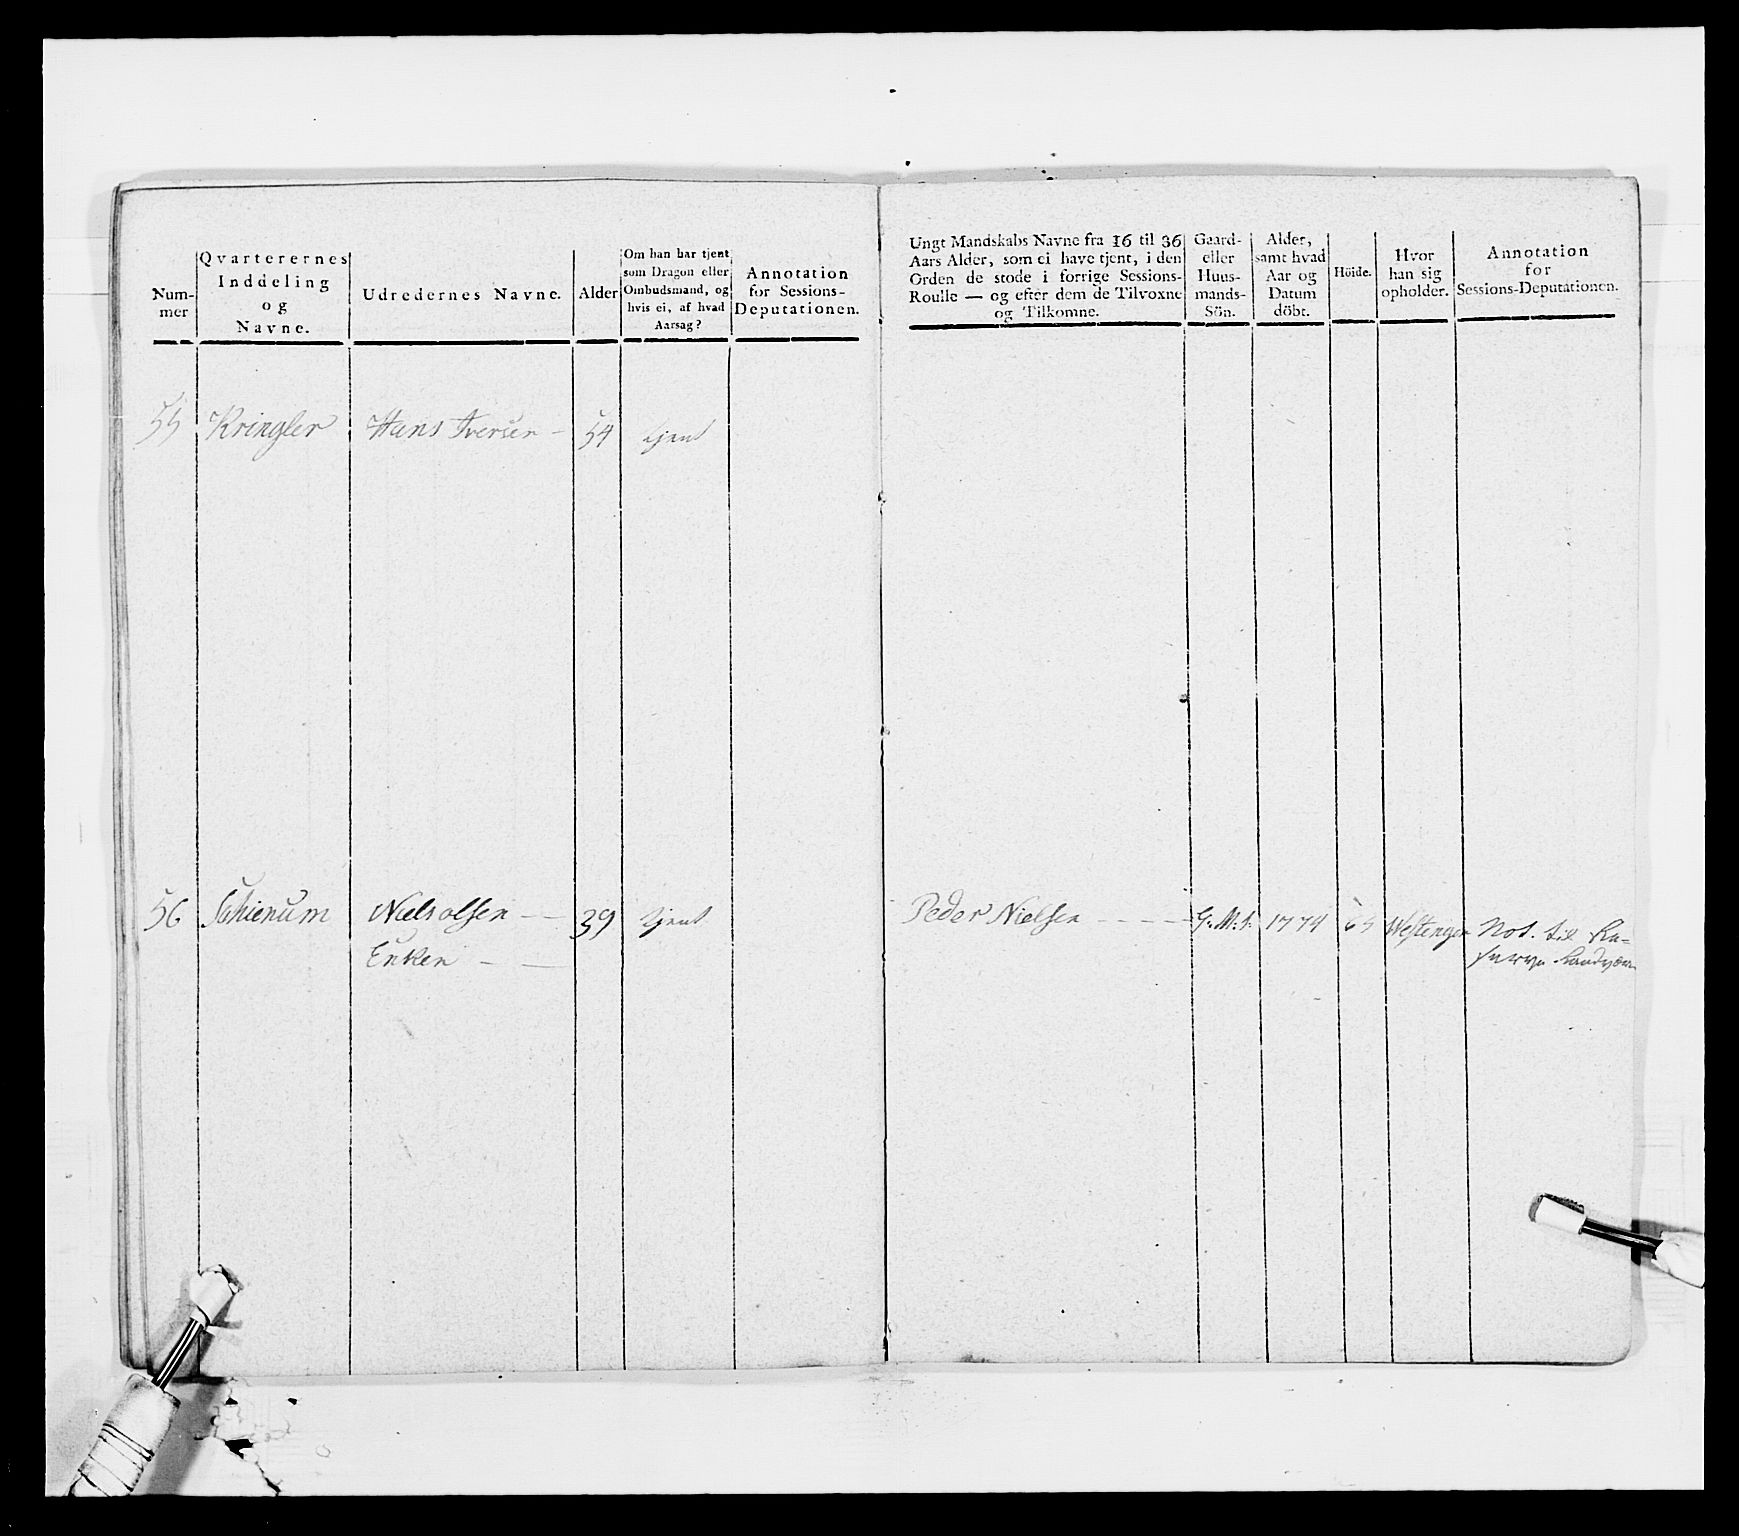 Num-
mer
Qvarterernes
Inddeling
og
Navne.
Udredernes Navne.
Alder
Om han har tjent
som Dragon eller
Ombudsmand, og
hvis ei, af hvad
Aarsag?
Annotation
for Sessions-
Deputationen.
55 Kringler Hans Iversen - 54 tjent
56 Schienum Niels olsen - - 39 tjent
Enken - -
Ungt Mandskabs Navne fra 16 til 36
Aars Alder, som ei have tjent, i den
Orden de stode i forrige Sessions-
Roulle — og efter dem de Tilvoxne
og Tilkomne.
Gaard-
eller
Huus-
mands-
Sön.
Alder,
samt hvad
Aar og
Datum
döbt.
Höide.
Hvor
han sig
opholder.
Annotation
for
Sessions-Deputationen.
Peder Nielsen - - - - G: M: S: 1774 Westengen Not. til Re-
serve Landvær